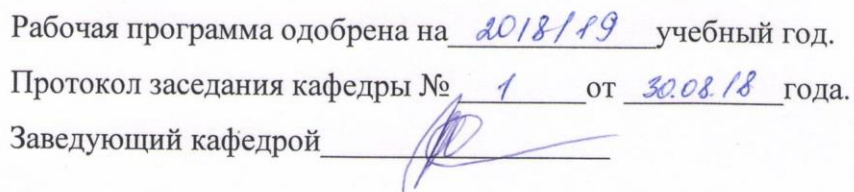 Рабочая программа одобрена на 2018/19 учебный год.
Протокол заседания кафедры № 1 от 30.08.18 года.
Заведующий кафедрой